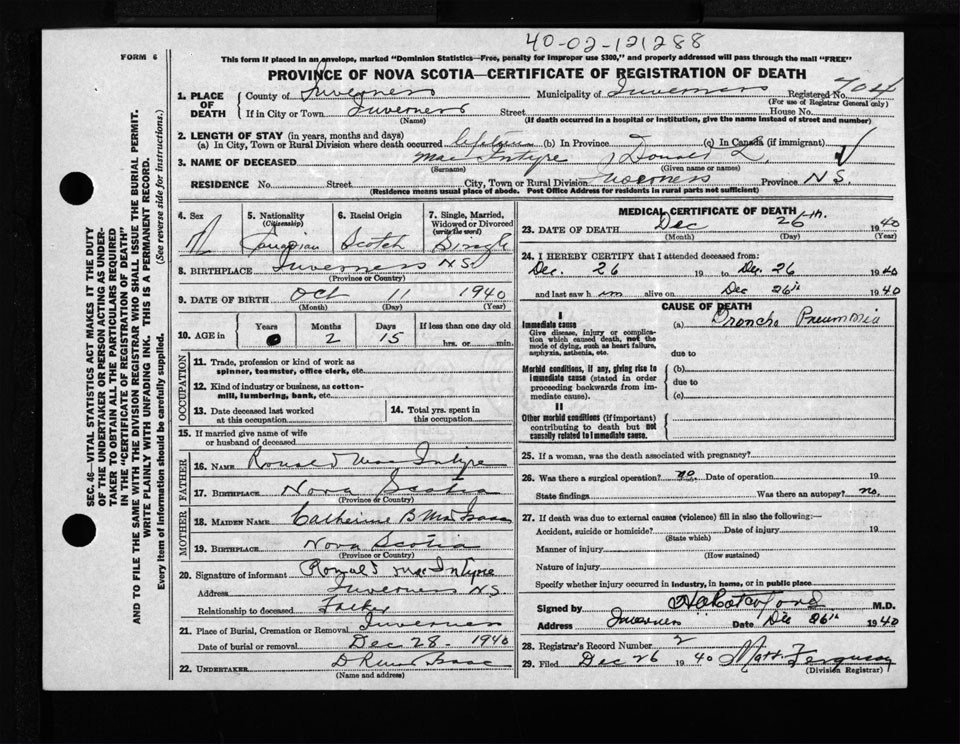 40-02-121288
FORM 6
This form if placed in an envelope, marked "Dominion Statistics—Free, penalty for improper use $300," and properly addressed will pass through the mail "FREE"
PROVINCE OF NOVA SCOTIA—CERTIFICATE OF REGISTRATION OF DEATH
SEC. 46—VITAL STATISTICS ACT MAKES IT THE DUTY
OF THE UNDERTAKER OR PERSON ACTING AS UNDER-
TAKER TO OBTAIN ALL THE PARTICULARS REQUIRED
IN THE "CERTIFICATE OF REGISTRATION OF DEATH"
AND TO FILE THE SAME WITH THE DIVISION REGISTRAR WHO SHALL ISSUE THE BURIAL PERMIT.
WRITE PLAINLY WITH UNFADING INK. THIS IS A PERMANENT RECORD.
Every item of information should be carefully supplied. (See reverse side for instructions.)
1. PLACE OF DEATH County of Inverness Municipality of Inverness Registered No. 704
(For use of Registrar General only)
If in City or Town Inverness Street House No.
(Name) (If death occurred in a hospital or institution, give the name instead of street and number)
2. LENGTH OF STAY (in years, months and days)
(a) In City, Town or Rural Division where death occurred Lifetime (b) In Province (c) In Canada (if immigrant)
3. NAME OF DECEASED MacIntyre Donald L.
(Surname) (Given name or names)
RESIDENCE No. Street City, Town or Rural Division Inverness Province N.S.
(Residence means usual place of abode. Post Office Address for residents in rural parts not sufficient)
4. Sex M
5. Nationality (Citizenship) Canadian
6. Racial Origin Scotch
7. Single, Married, Widowed or Divorced (write the word) Single
8. BIRTHPLACE Inverness N.S.
(Province or Country)
9. DATE OF BIRTH Oct 11 1940
(Month) (Day) (Year)
10. AGE in Years 0 Months 2 Days 15 If less than one day old
hrs. or min.
OCCUPATION
11. Trade, profession or kind of work as
spinner, teamster, office clerk, etc.
12. Kind of industry or business, as cotton-
mill, lumbering, bank, etc.
13. Date deceased last worked
at this occupation
14. Total yrs. spent in
this occupation
15. If married give name of wife
or husband of deceased
FATHER
16. NAME Ronald MacIntyre
17. BIRTHPLACE Nova Scotia
(Province or Country)
MOTHER
18. MAIDEN NAME Catherine B McIsaac
19. BIRTHPLACE Nova Scotia
(Province or Country)
20. Signature of informant Ronald MacIntyre
Address Inverness N.S.
Relationship to deceased Father
21. Place of Burial, Cremation or Removal Inverness
Date of burial or removal Dec 28 1940
22. UNDERTAKER Isaac
(Name and address)
MEDICAL CERTIFICATE OF DEATH
23. DATE OF DEATH Dec 26th. 1940
(Month) (Day) (Year)
24. I HEREBY CERTIFY that I attended deceased from:
Dec. 26 19 to Dec. 26 1940
and last saw him alive on Dec 26th 1940
CAUSE OF DEATH
I
Immediate cause
Give disease, injury or complica-
tion which caused death, not the
mode of dying, such as heart failure,
asphyxia, asthenia, etc.
(a) Broncho Pneumonia
due to
Morbid conditions, if any, giving rise to
immediate cause (stated in order
proceeding backwards from im-
mediate cause).
(b)
due to
(c)
II
Other morbid conditions (if important)
contributing to death but not
causally related to immediate cause.
25. If a woman, was the death associated with pregnancy?
26. Was there a surgical operation? no. Date of operation 19
State findings Was there an autopsy? no.
27. If death was due to external causes (violence) fill in also the following:—
Accident, suicide or homicide? Date of injury 19
(State which)
Manner of injury
(How sustained)
Nature of injury
Specify whether injury occurred in industry, in home, or in public place
Signed by M.D.
Address Inverness Date Dec 26th 1940
28. Registrar's Record Number 2
29. Filed Dec 26 1940 Matt. Ferguson
(Division Registrar)